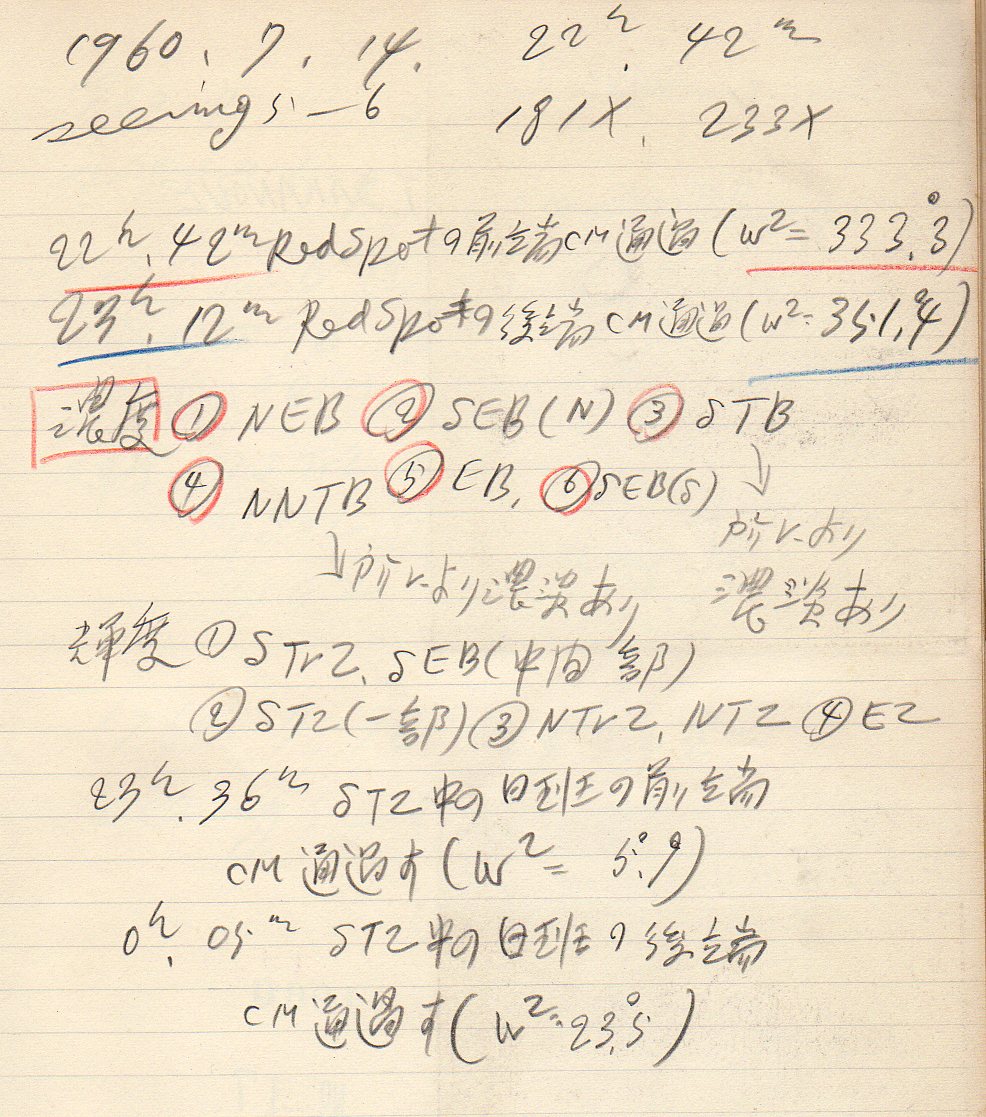 1960. 7. 14. 22h. 42m
seeing 5-6 181X. 233X
22h. 42m Red Spotの前端CM通過(W²= 333.°3)
23h. 12m Red Spotの後端CM通過(W²= 351.°4)
濃度 ① NEB ② SEB(N) ③ STB
④ NNTB ⑤ EB, ⑥ SEB(S)
↓ 所により
↓ 所により濃淡あり 濃淡あり
輝度 ① STrZ, SEB(中間部)
② STZ(一部) ③ NTrZ, NTZ ④ EZ
23h. 36m STZ中の白斑の前端
CM通過す(W²= 5.°9)
0h. 05m STZ中の白斑の後端
CM通過す(W²= 23.°5)